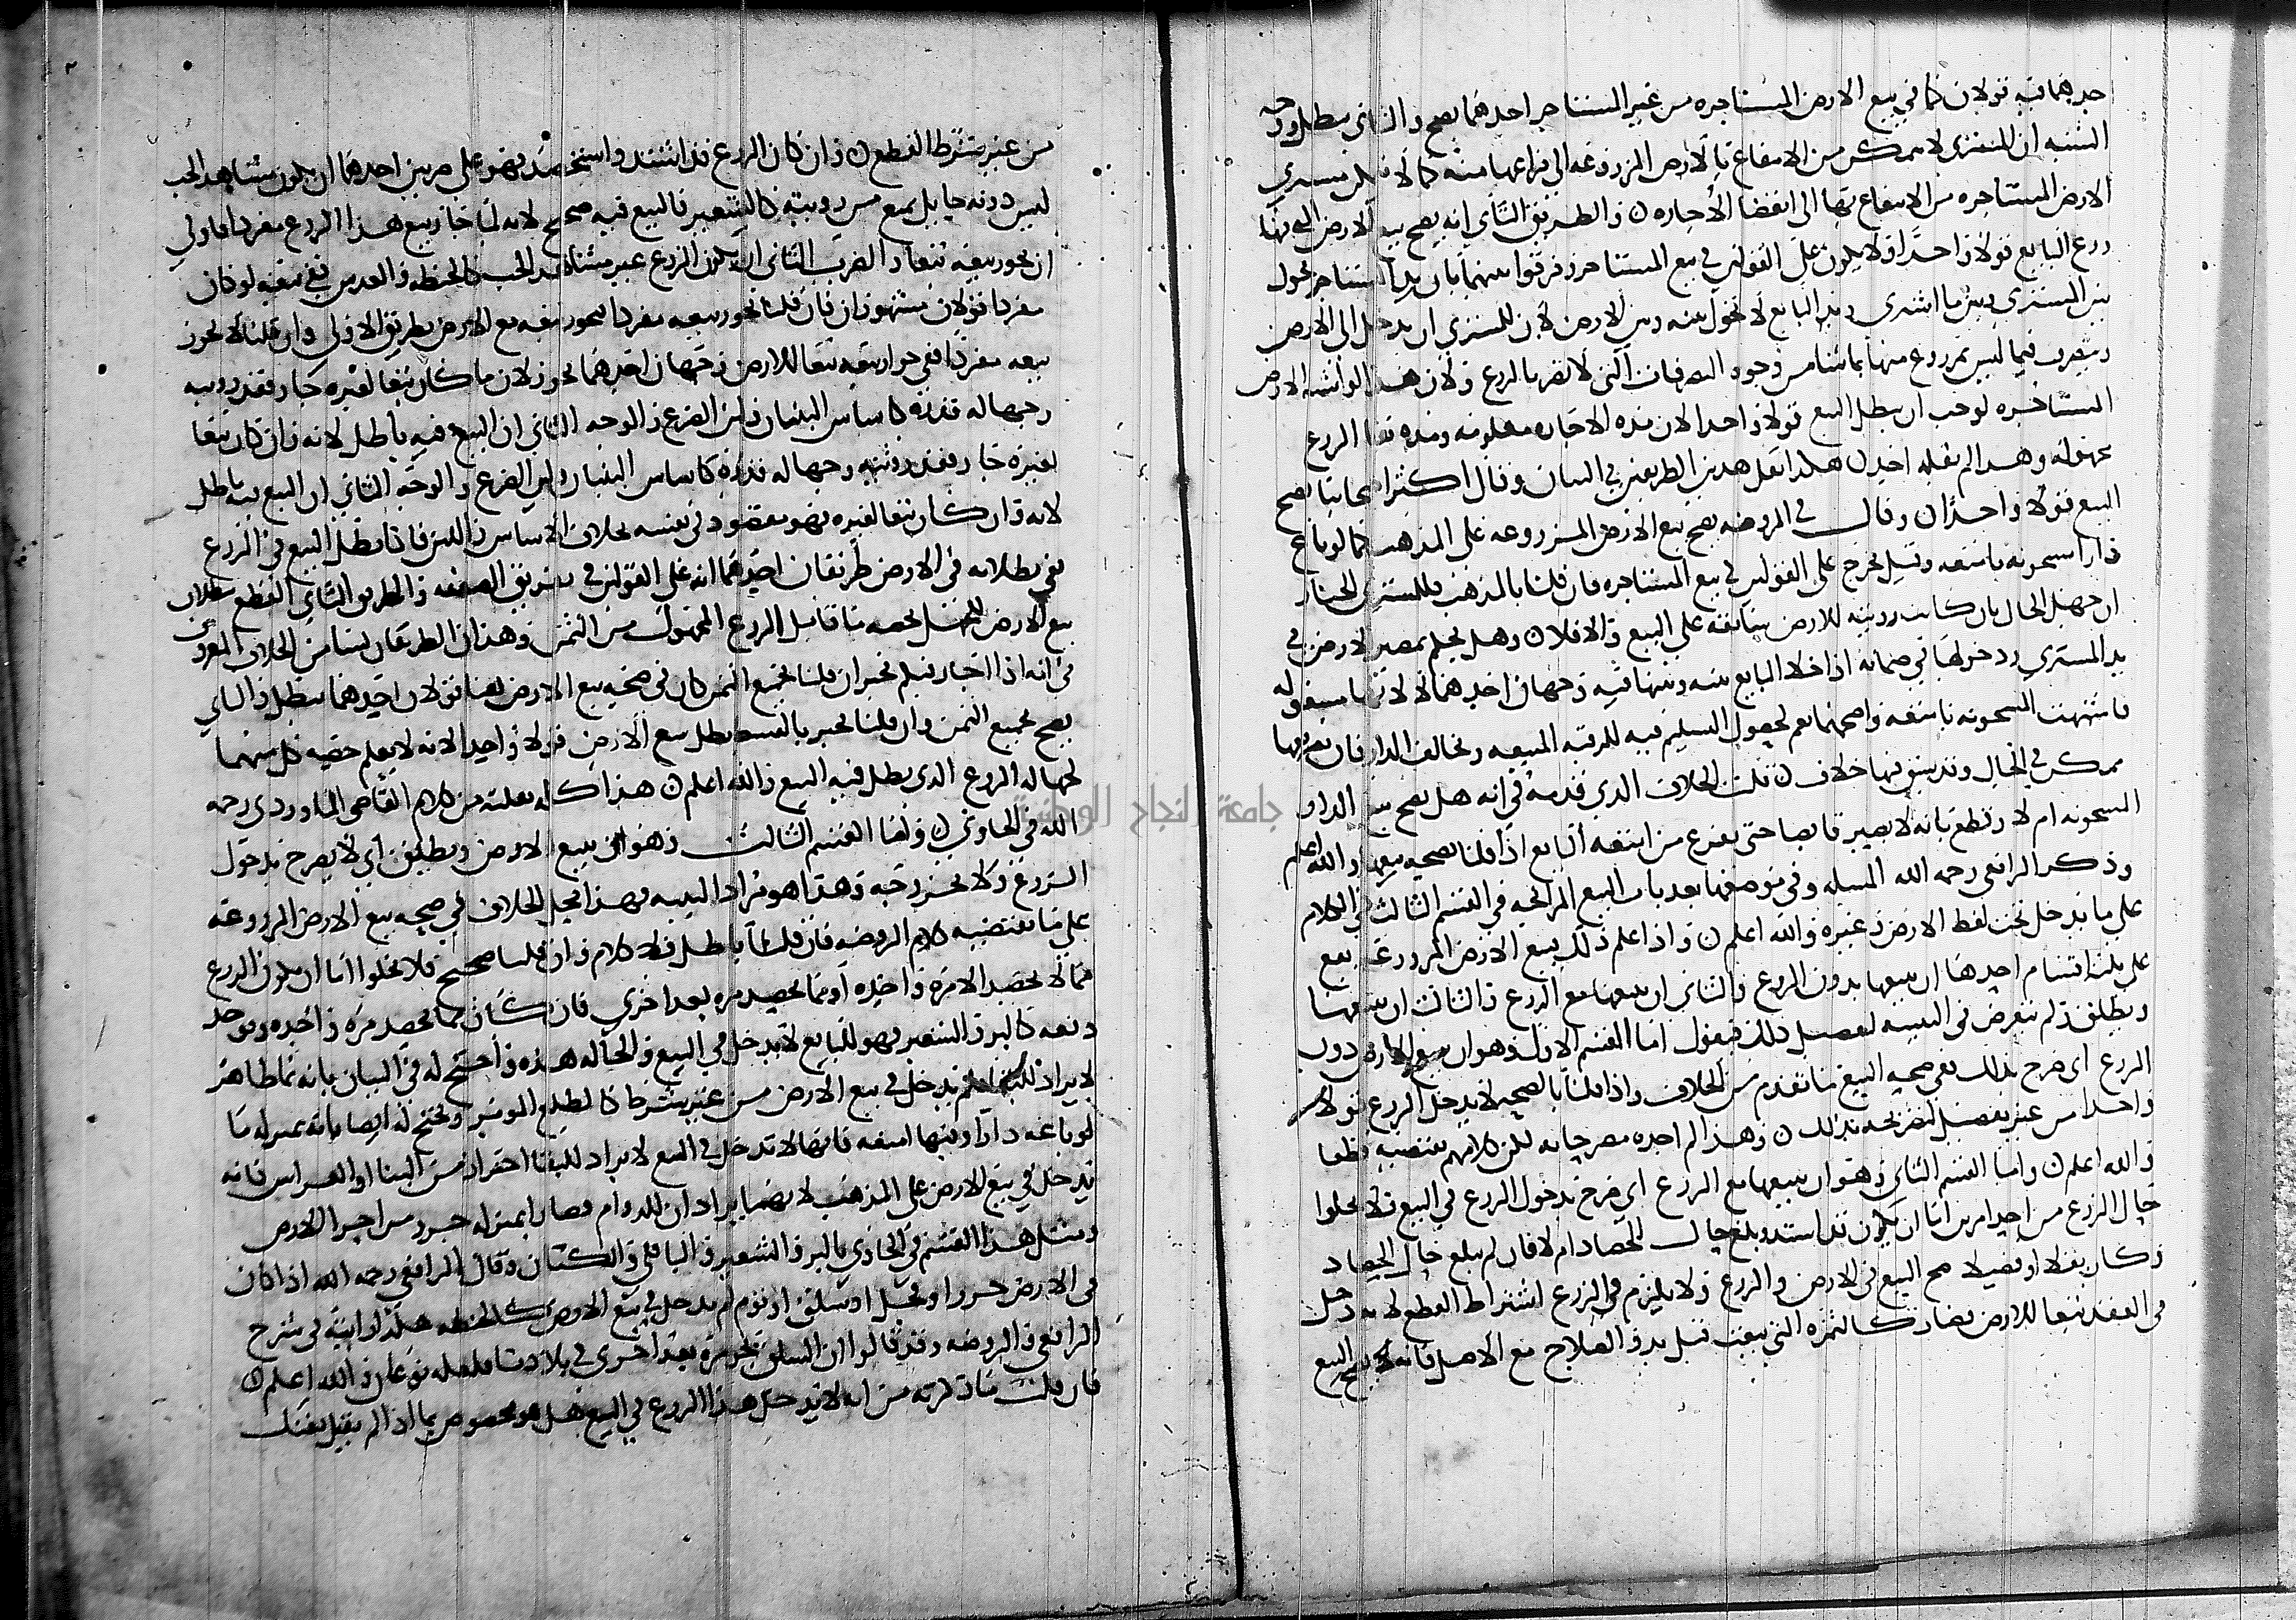 احدهما فيه قولان كما في بيع الارض المستاجره من غير المستاجر احدهما يصح والثاني يبطل ووجه
الشبه ان المشتري لا يتمكن من الانتفاع بالارض المزروعه الى فراغها منه كما لا يتمكن مشتري
الارض المستاجره من الانتفاع بها الى انقضا الاجاره والطريق الثاني انه يصح بيع الارض التي فيها
زرع البايع قولا واحدا ولا يكون على القولين في بيع المستاجر وفرقوا بينهما بان يد المستاجر تحول
بين المشتري وبين ما اشترى ويد البايع لا تحول بينه وبين الارض لان للمشتري ان يدخل الى الارض
ويتصرف فيما ليس بمزروع منها بما شا من وجوه التصرفات التي لا تضر بالزرع ولان هذا لو اشبه الارض
المستاجره لوجب ان يبطل البيع قولا واحدا لان مده الاجاره معلومه ومده بقا الزرع
مجهوله وهذا لم يقله احد هكذا نقل هذين الطريقين في البيان وقال اكثر اصحابنا يصح
البيع قولا واحدا وقال في الروضه يصح بيع الارض المزروعه على المذهب كما لو باع
دارا مشحونه بامتعه وقيل يخرج على القولين في بيع المستاجره فان قلنا بالمذهب فللمشتري الخيار
ان جهل الحال بان كانت رويته للارض سابقه على البيع والا فلا وهل يحكم بمصير الارض في
يد المشتري ودخولها في ضمانه اذا خلا البايع بينه وبينها فيه وجهان احدهما لا لانها مشغوله
فاشبهت المشحونه بامتعه واصحهما نعم لحصول التسليم فيه للرقبه المبيعه وتخالف الدار فان تفريغها
ممكن في الحال وقد سبق فيها خلاف قلت الخلاف الذي قدمه في انه هل يصح بيع الدار
المشحونه ام لا وقطع بانه لا يصير قابضا حتى يفرغ من امتعه البايع اذا قلنا يصحه بيعها والله اعلم
وذكر الرافعي رحمه الله المسله وفي موضعها بعد باب البيع المرابحه في القسم الثالث في الكلام
على ما يدخل تحت لفظ الارض وغيره والله اعلم واذا علم ذلك ببيع الارض المزروعه يقع
على ثلثه اقسام احدها ان يبيعها بدون الزرع والثاني ان يبيعها مع الزرع والثالث ان يبيعها
ويطلق ولم يتعرض في التنبيه لتفصيل ذلك فيقول اما القسم الاول وهو ان يبيع الارض دون
الزرع اي صرح بذلك ففي صحه البيع ما تقدم من الخلاف واذا قلنا بالصحه لا يدخل الزرع قولا
واحدا من غير تفصيل لتصريحه بذلك وهذا لم اجده مصرحا به لكن كلامهم يقتضيه قطعا
والله اعلم واما القسم الثاني وهو ان يبيعها مع الزرع اي صرح بدخول الزرع في البيع فلا يخلوا
حال الزرع من احد امرين اما ان يكون قد اشتد وبلغ حال الحصاد ام لا فان لم يبلغ حال الحصاد
وكان بقلا او فصيلا صح البيع في الارض والزرع ولا يلزم في الزرع اشتراط القطع لانه دخل
في العقد تبعا للارض فصار كالثمره التي بيعت قبل بدو الصلاح مع الاصل فانه يصح البيع
من غير شرط القطع وان كان الزرع قد اشتد واستحصد فهو على ضربين احدهما ان يكون مشاهد الحب
ليس دونه حايل يمنع من رويته كالشعير فالبيع فيه صحيح لانه لما جاز بيع هذا الزرع مفردا فاولى
ان يجوز بيعه تبعا والضرب الثاني ان يكون الزرع غير مشاهد الحب كالحنطه والعدس ففي بيعه لو كان
مفردا قولان مشهوران فان قلنا يجوز بيعه مفردا يجوز بيعه مع الارض بطريق الاولى وان قلنا لا يجوز
بيعه مفردا ففي جواز بيعه تبعا للارض وجهان احدهما يجوز لان ما كان تبعا لغيره جاز فقد رويته
وجهاله قدره كاساس البنيان ولبن الضرع والوجه الثاني ان البيع فيه باطل لانه وان كان تبعا
لغيره جاز فقد رويته وجهاله قدره كاساس البنيان ولبن الضرع والوجه الثاني ان البيع فيه باطل
لانه وان كان تبعا لغيره فهو مقصود في نفسه بخلاف الاساس واللبن فاذا بطل البيع في الزرع
ففي بطلانه في الارض طريقان احدهما انه على القولين في تفريق الصفقه والطريق الثاني القطع ببطلان
بيع الارض للجهل بحصه ما قابل الزرع المجهول من الثمن وهذان الطريقان بنيا من الخلاف المعروف
في انه اذا اجاز فبكم يخير ان قلنا بجميع الثمن كان في صحه بيع الارض هنا قولان احدهما يبطل والثاني
يصح بجميع الثمن وان قلنا يخير بالقسط بطل بيع الارض قولا واحدا لانه لا يعلم حصه كل منهما
لجهاله الزرع الذي بطل فيه البيع والله اعلم هذا كله نقلته من كلام القاضي الماوردي رحمه
الله في الحاوي واما القسم الثالث وهو ان يبيع الارض ويطلق اي لا يصرح بدخول
الزرع ولا بخروجه وهذا هو مراد التنبيه فهذا محل الخلاف في صحه بيع الارض المزروعه
على ما يقتضيه كلام الروضه فان قلنا باطل فلا كلام وان قلنا صحيح فلا يخلوا اما ان يكون الزرع
مما لا يحصد الا مره واحده او مما يحصد مره بعد اخرى فان كان مما يحصد مره واحده ويوخذ
دفعه كالبر والشعير فهو للبايع لا يدخل في البيع والحاله هذه واحتج له في البيان بانه نما ظاهر
لا يراد للبقا فلم يدخل في بيع الارض من غير شرط كالطلع الموبر ويحتج له ايضا بانه بمنزله ما
لو باعه دارا وفيها امتعه فانها لا تدخل في البيع لا يراد للبقا احترازا من البنا او الغراس فانه
يدخل في بيع الارض على المذهب لانهما يرادان للدوام فصارا بمنزله جزو من اجزا الارض
ومثل هذا القسم في الحاوي بالبر والشعير والباقلي والكتان وقال الرافعي رحمه الله اذا كان
في الارض جزر او فجل او سلق او ثوم لم يدخل في بيع الارض كالحنطه هكذا رايته في شرح
الرافعي والروضه وقد قالوا ان السلق يجز مره بعد اخرى في بلادنا فلعله نوعان والله اعلم
فان قلت ما ذكرته من انه لا يدخل هذا الزرع في البيع هل هو مخصوص بما اذا لم يقل بعتك